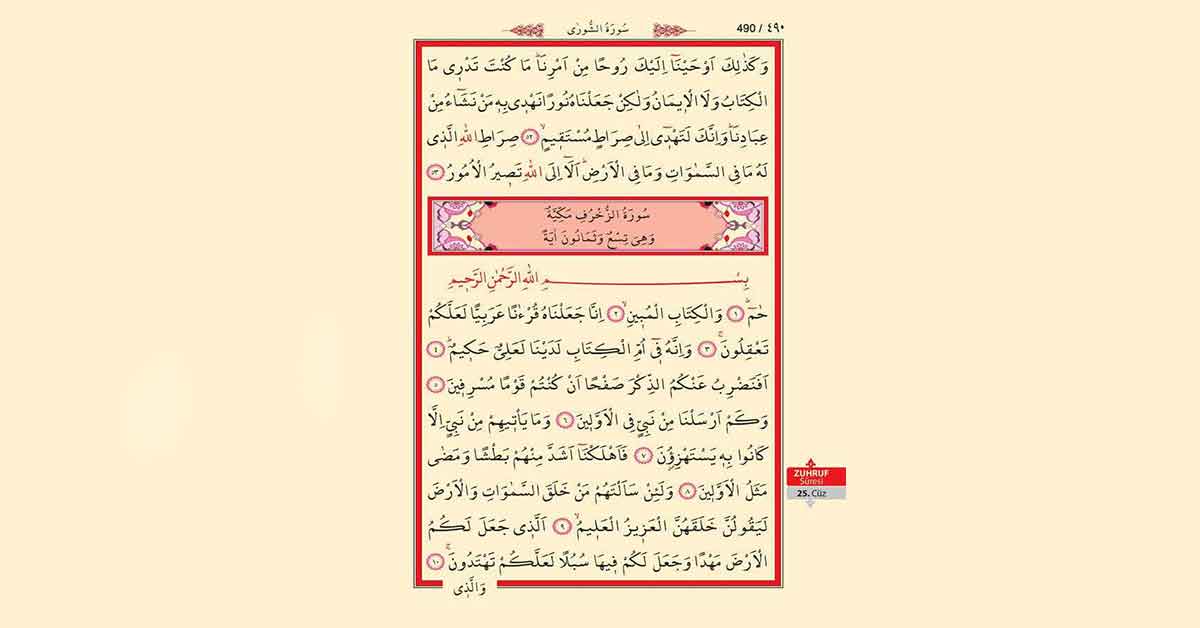 سُورَةُ الشُّورٰى
490 / ٤٩٠
وَكَذٰلِكَ اَوْحَيْنَٓا اِلَيْكَ رُوحًا مِنْ اَمْرِنَاۜ مَا كُنْتَ تَدْر۪ي مَا
الْكِتَابُ وَلَا الْا۪يمَانُ وَلٰكِنْ جَعَلْنَاهُ نُورًا نَهْد۪ي بِه۪ مَنْ نَشَٓاءُ مِنْ
عِبَادِنَاۜ وَاِنَّكَ لَتَهْد۪ٓي اِلٰى صِرَاطٍ مُسْتَق۪يمٍۙ ٥٢ صِرَاطِ اللّٰهِ الَّذ۪ي
لَهُ مَا فِي السَّمٰوَاتِ وَمَا فِي الْاَرْضِۜ اَلَٓا اِلَى اللّٰهِ تَص۪يرُ الْاُمُورُ ٥٣
سُورَةُ الزُّخْرُفِ مَكِّيَّةٌ
وَهِيَ تِسْعٌ وَثَمَانُونَ اٰيَةً
بِسْــــــــــــمِ اللّٰهِ الرَّحْمٰنِ الرَّح۪يمِ
حٰمٓۜ ١ وَالْكِتَابِ الْمُب۪ينِۙ ٢ اِنَّا جَعَلْنَاهُ قُرْءٰنًا عَرَبِيًّا لَعَلَّكُمْ
تَعْقِلُونَۚ ٣ وَاِنَّهُ ف۪ٓي اُمِّ الْكِتَابِ لَدَيْنَا لَعَلِيٌّ حَك۪يمٌۜ ٤
اَفَنَضْرِبُ عَنْكُمُ الذِّكْرَ صَفْحًا اَنْ كُنْتُمْ قَوْمًا مُسْرِف۪ينَ ٥
وَكَمْ اَرْسَلْنَا مِنْ نَبِيٍّ فِي الْاَوَّل۪ينَ ٦ وَمَا يَأْت۪يهِمْ مِنْ نَبِيٍّ اِلَّا
كَانُوا بِه۪ يَسْتَهْزِؤُ۫نَ ٧ فَاَهْلَكْنَٓا اَشَدَّ مِنْهُمْ بَطْشًا وَمَضٰى
مَثَلُ الْاَوَّل۪ينَ ٨ وَلَئِنْ سَاَلْتَهُمْ مَنْ خَلَقَ السَّمٰوَاتِ وَالْاَرْضَ
لَيَقُولُنَّ خَلَقَهُنَّ الْعَز۪يزُ الْعَل۪يمُۙ ٩ اَلَّذ۪ي جَعَلَ لَكُمُ
الْاَرْضَ مَهْدًا وَجَعَلَ لَكُمْ ف۪يهَا سُبُلًا لَعَلَّكُمْ تَهْتَدُونَۚ ١٠
وَالَّذ۪ي
ZUHRUF
Sûresi
25. Cüz